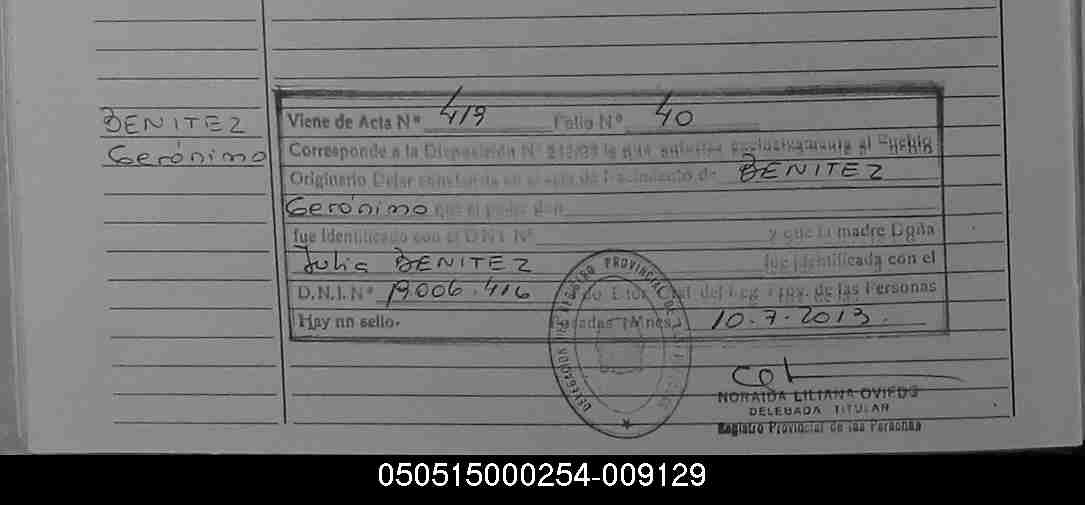 BENITEZ
Gerónimo
Viene de Acta Nº 419 Folio Nº 40
Corresponde a la Disposición Nº al Pueblo
Originario Dejar constancia en el acta de Nacimiento de BENITEZ
Gerónimo que el padre don
fue identificado con el DNI Nº y que la madre Doña
Julia BENITEZ fue identificada con el
D.N.I. Nº 19.006.416 del Reg. Prov. de las Personas
Hay un sello. Posadas (Mnes) 10.7.2013.
DELEGADON DEL REGISTRO PROVINCIAL DE
NORAIDA LILIANA OVIEDO
DELEGADA TITULAR
Registro Provincial de las Personas
050515000254-009129